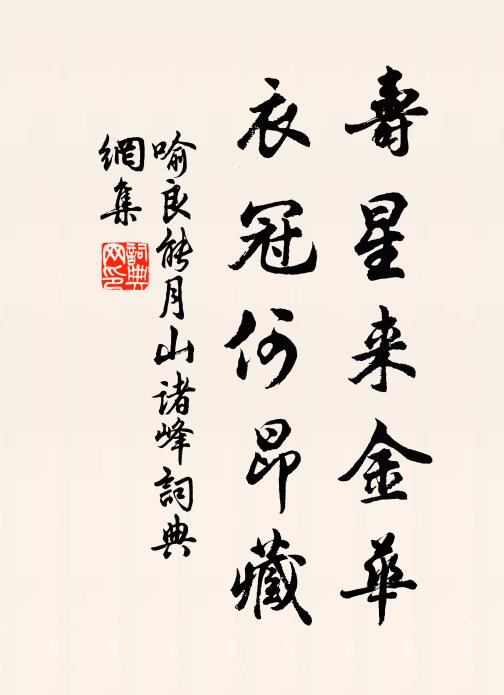 壽星来金華
衣冠何昂藏
喻良能月山諸峰詞典
網集
詞典网印